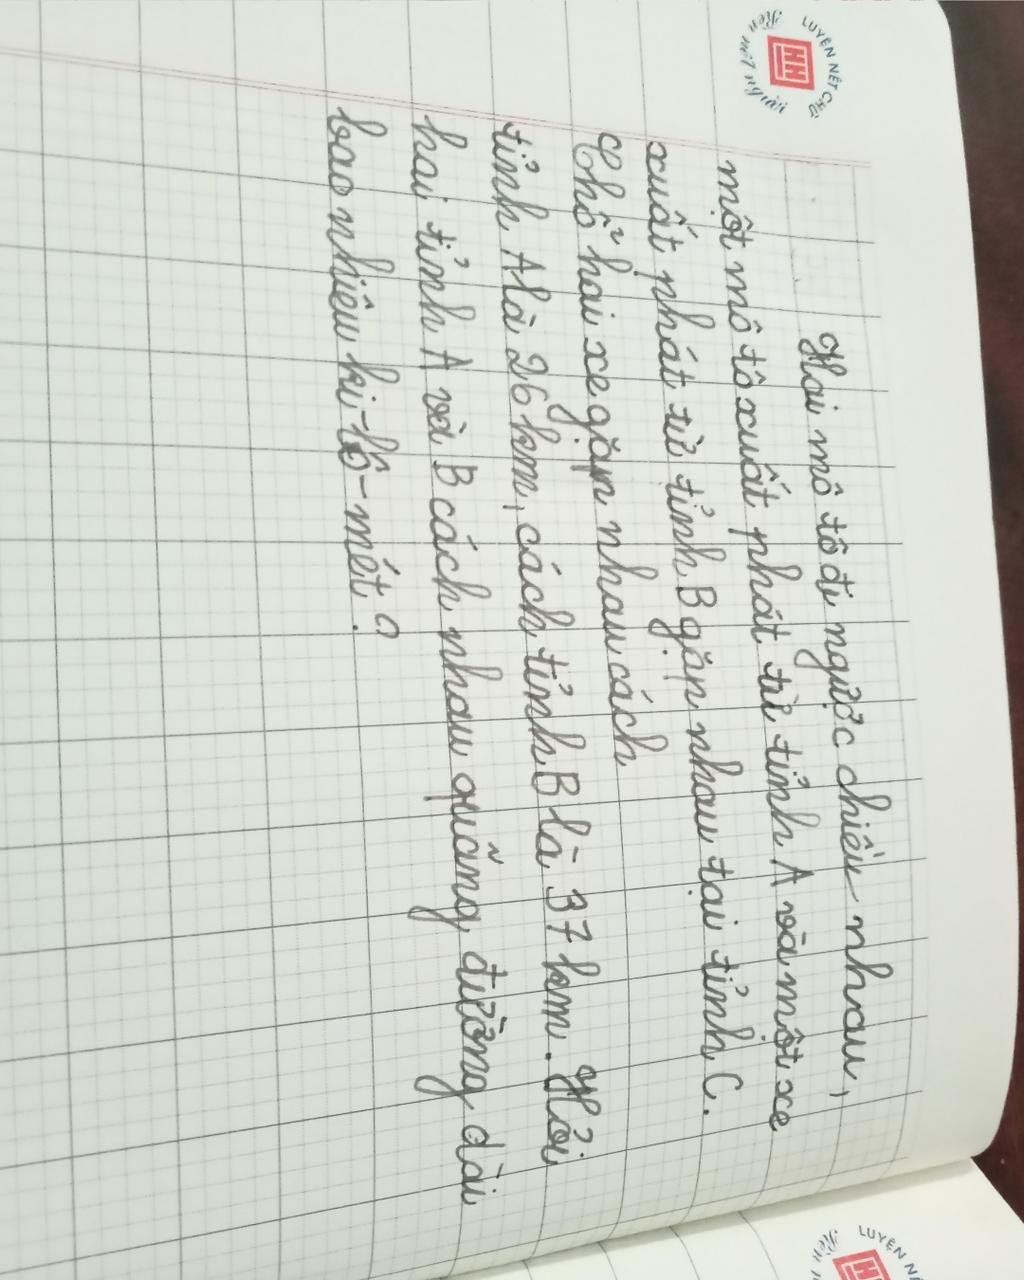 LUYỆN NÉT CHỮ
Rèn nết người
HH
Hai mô tô đi ngược chiều nhau,
một mô tô xuất phát từ tỉnh A và một xe
xuất phát từ tỉnh B gặp nhau tại tỉnh C.
Chỗ hai xe gặp nhau cách
tỉnh A là 26 km, cách tỉnh B là 37 km. Hỏi
hai tỉnh A và B cách nhau quãng đường dài
bao nhiêu ki-lô-mét?
LUYỆN NÉ
Rèn n
HH